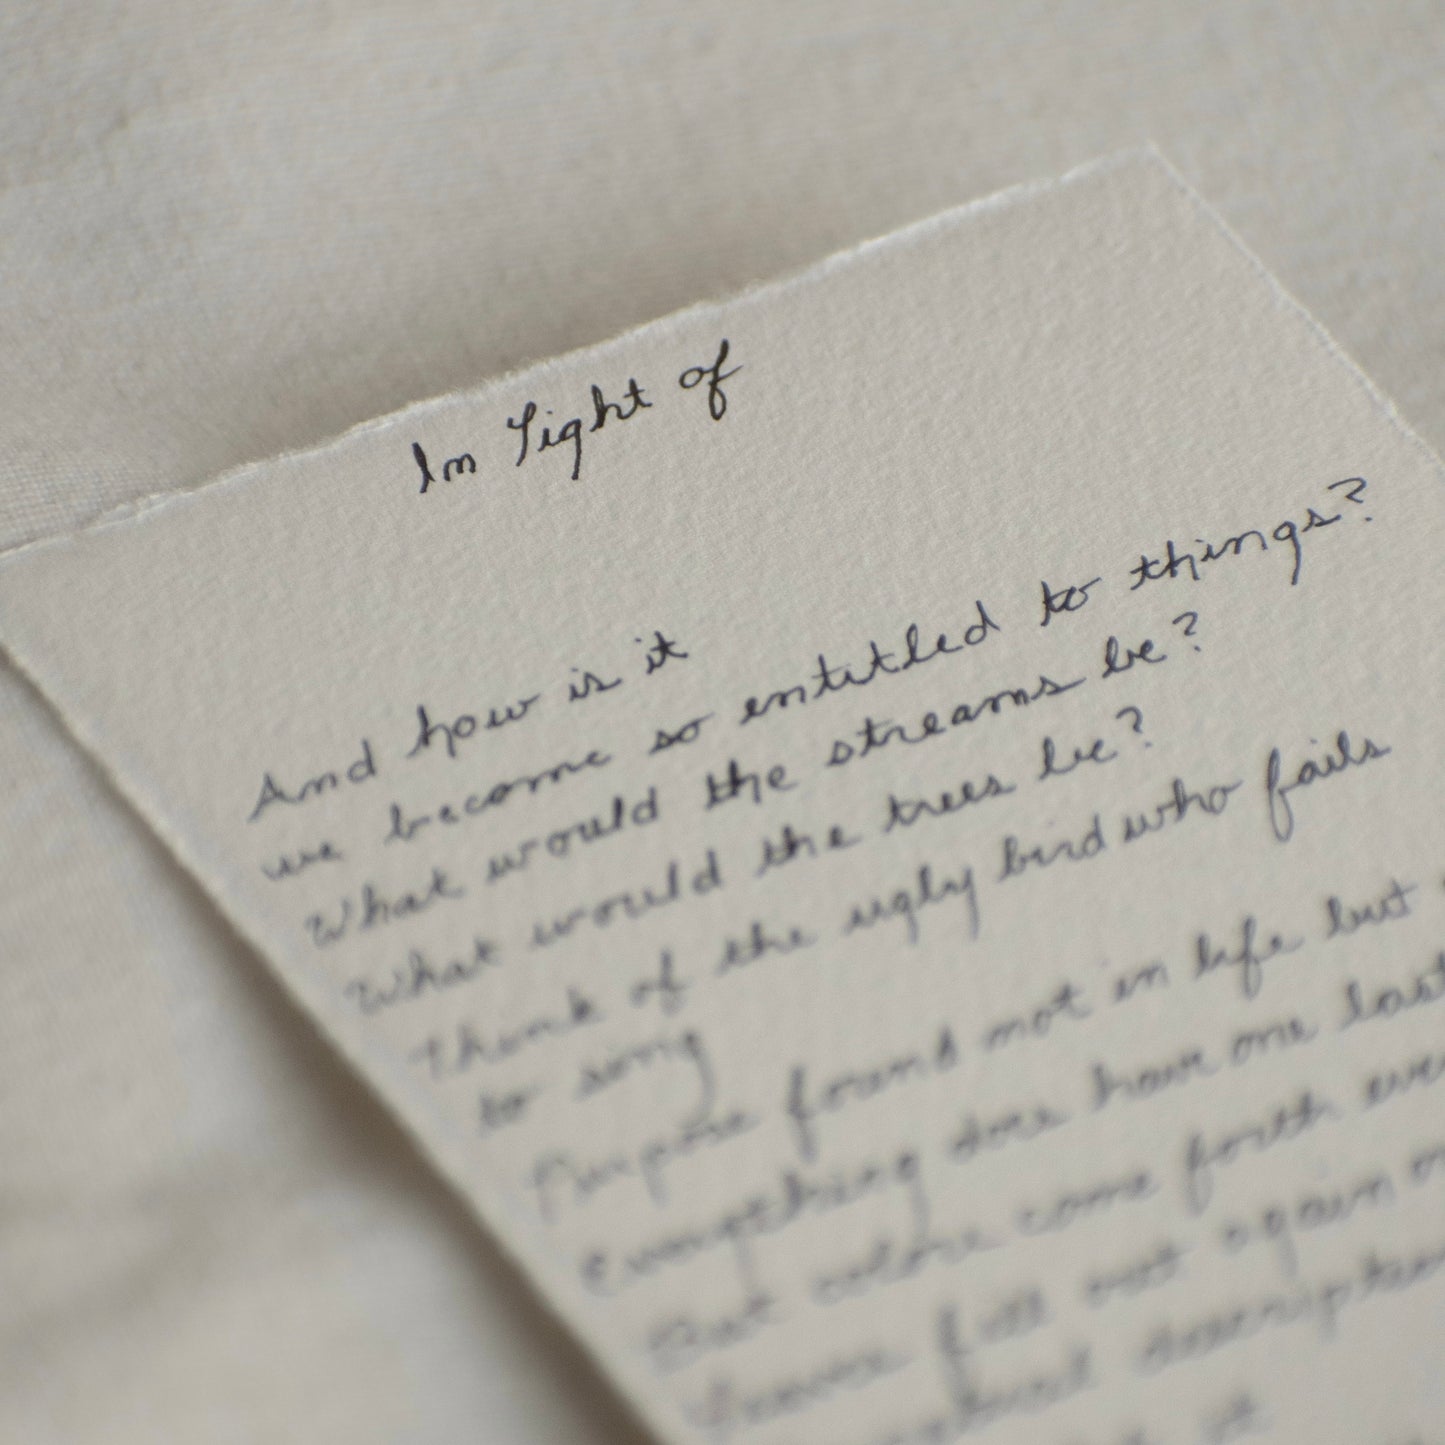 In Light of
And how is it
we become so entitled to things?
What would the streams be?
What would the trees be?
Think of the ugly bird who fails
to song
Purpose found not in life but
Everything does have one last
But colors come forth
leaves fall out again